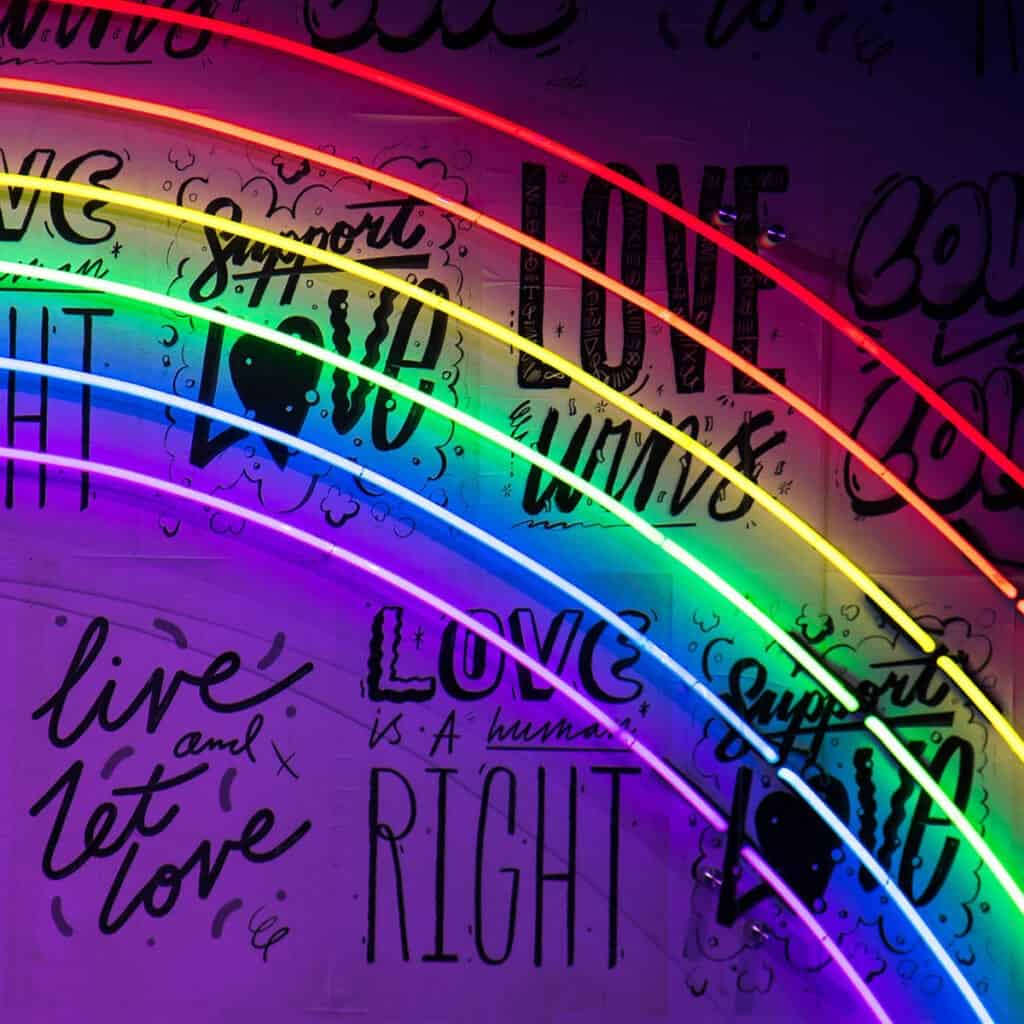 wins
OVE
man
HT
Support
LOVE
LOVE
wins
LOV
is
LOV
live
and
let
love
LOVE
is A human
RIGHT
Support
LOVE